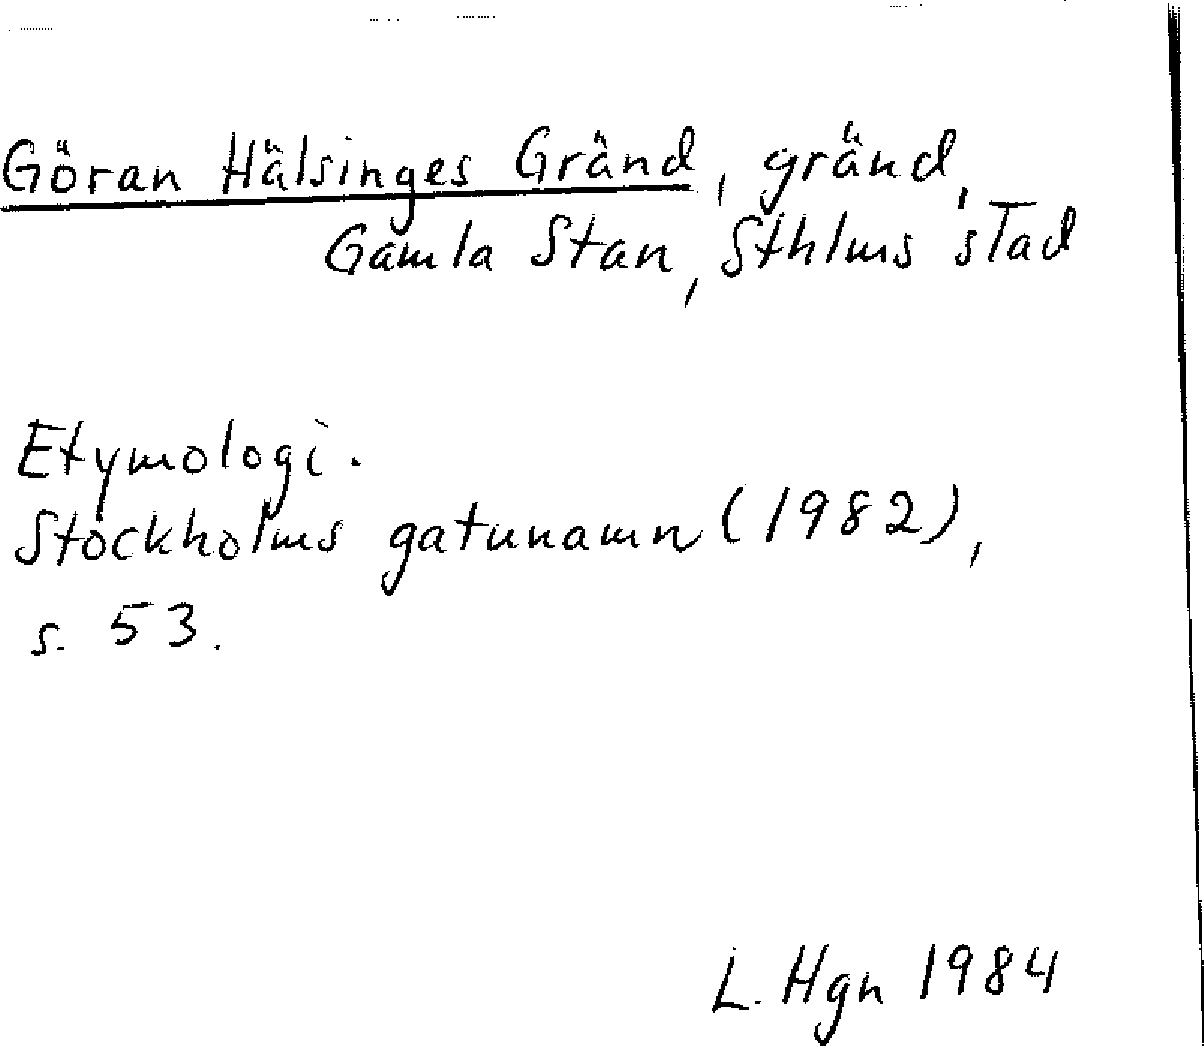 Göran Hälsinges Gränd, gränd,
Gamla Stan, Sthlms stad
Etymologi.
Stockholms gatunamn (1982),
s. 53.
L. Hgn 1984